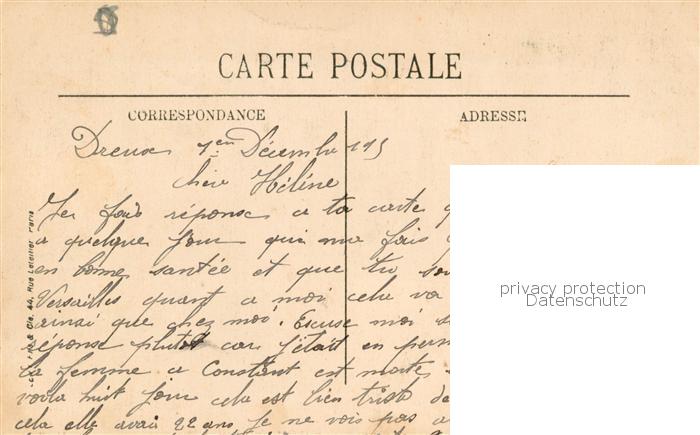 CARTE POSTALE
CORRESPONDANCE
ADRESSE
Dreux 1er Décembre 115
Chère Hélène
Je fais réponse a ta carte
a quelque jour qui me fais
en bonne santée et que tu
Versailles quant a moi cela va
ainsi que chez moi. Escuse moi
réponse plutot car j'était en perm
la femme a Constant est morte
voila huit jour cela est bien triste de
cela elle avais 22 ans Je ne vois pas a
44, Rue Letellier Paris
privacy protection
Datenschutz